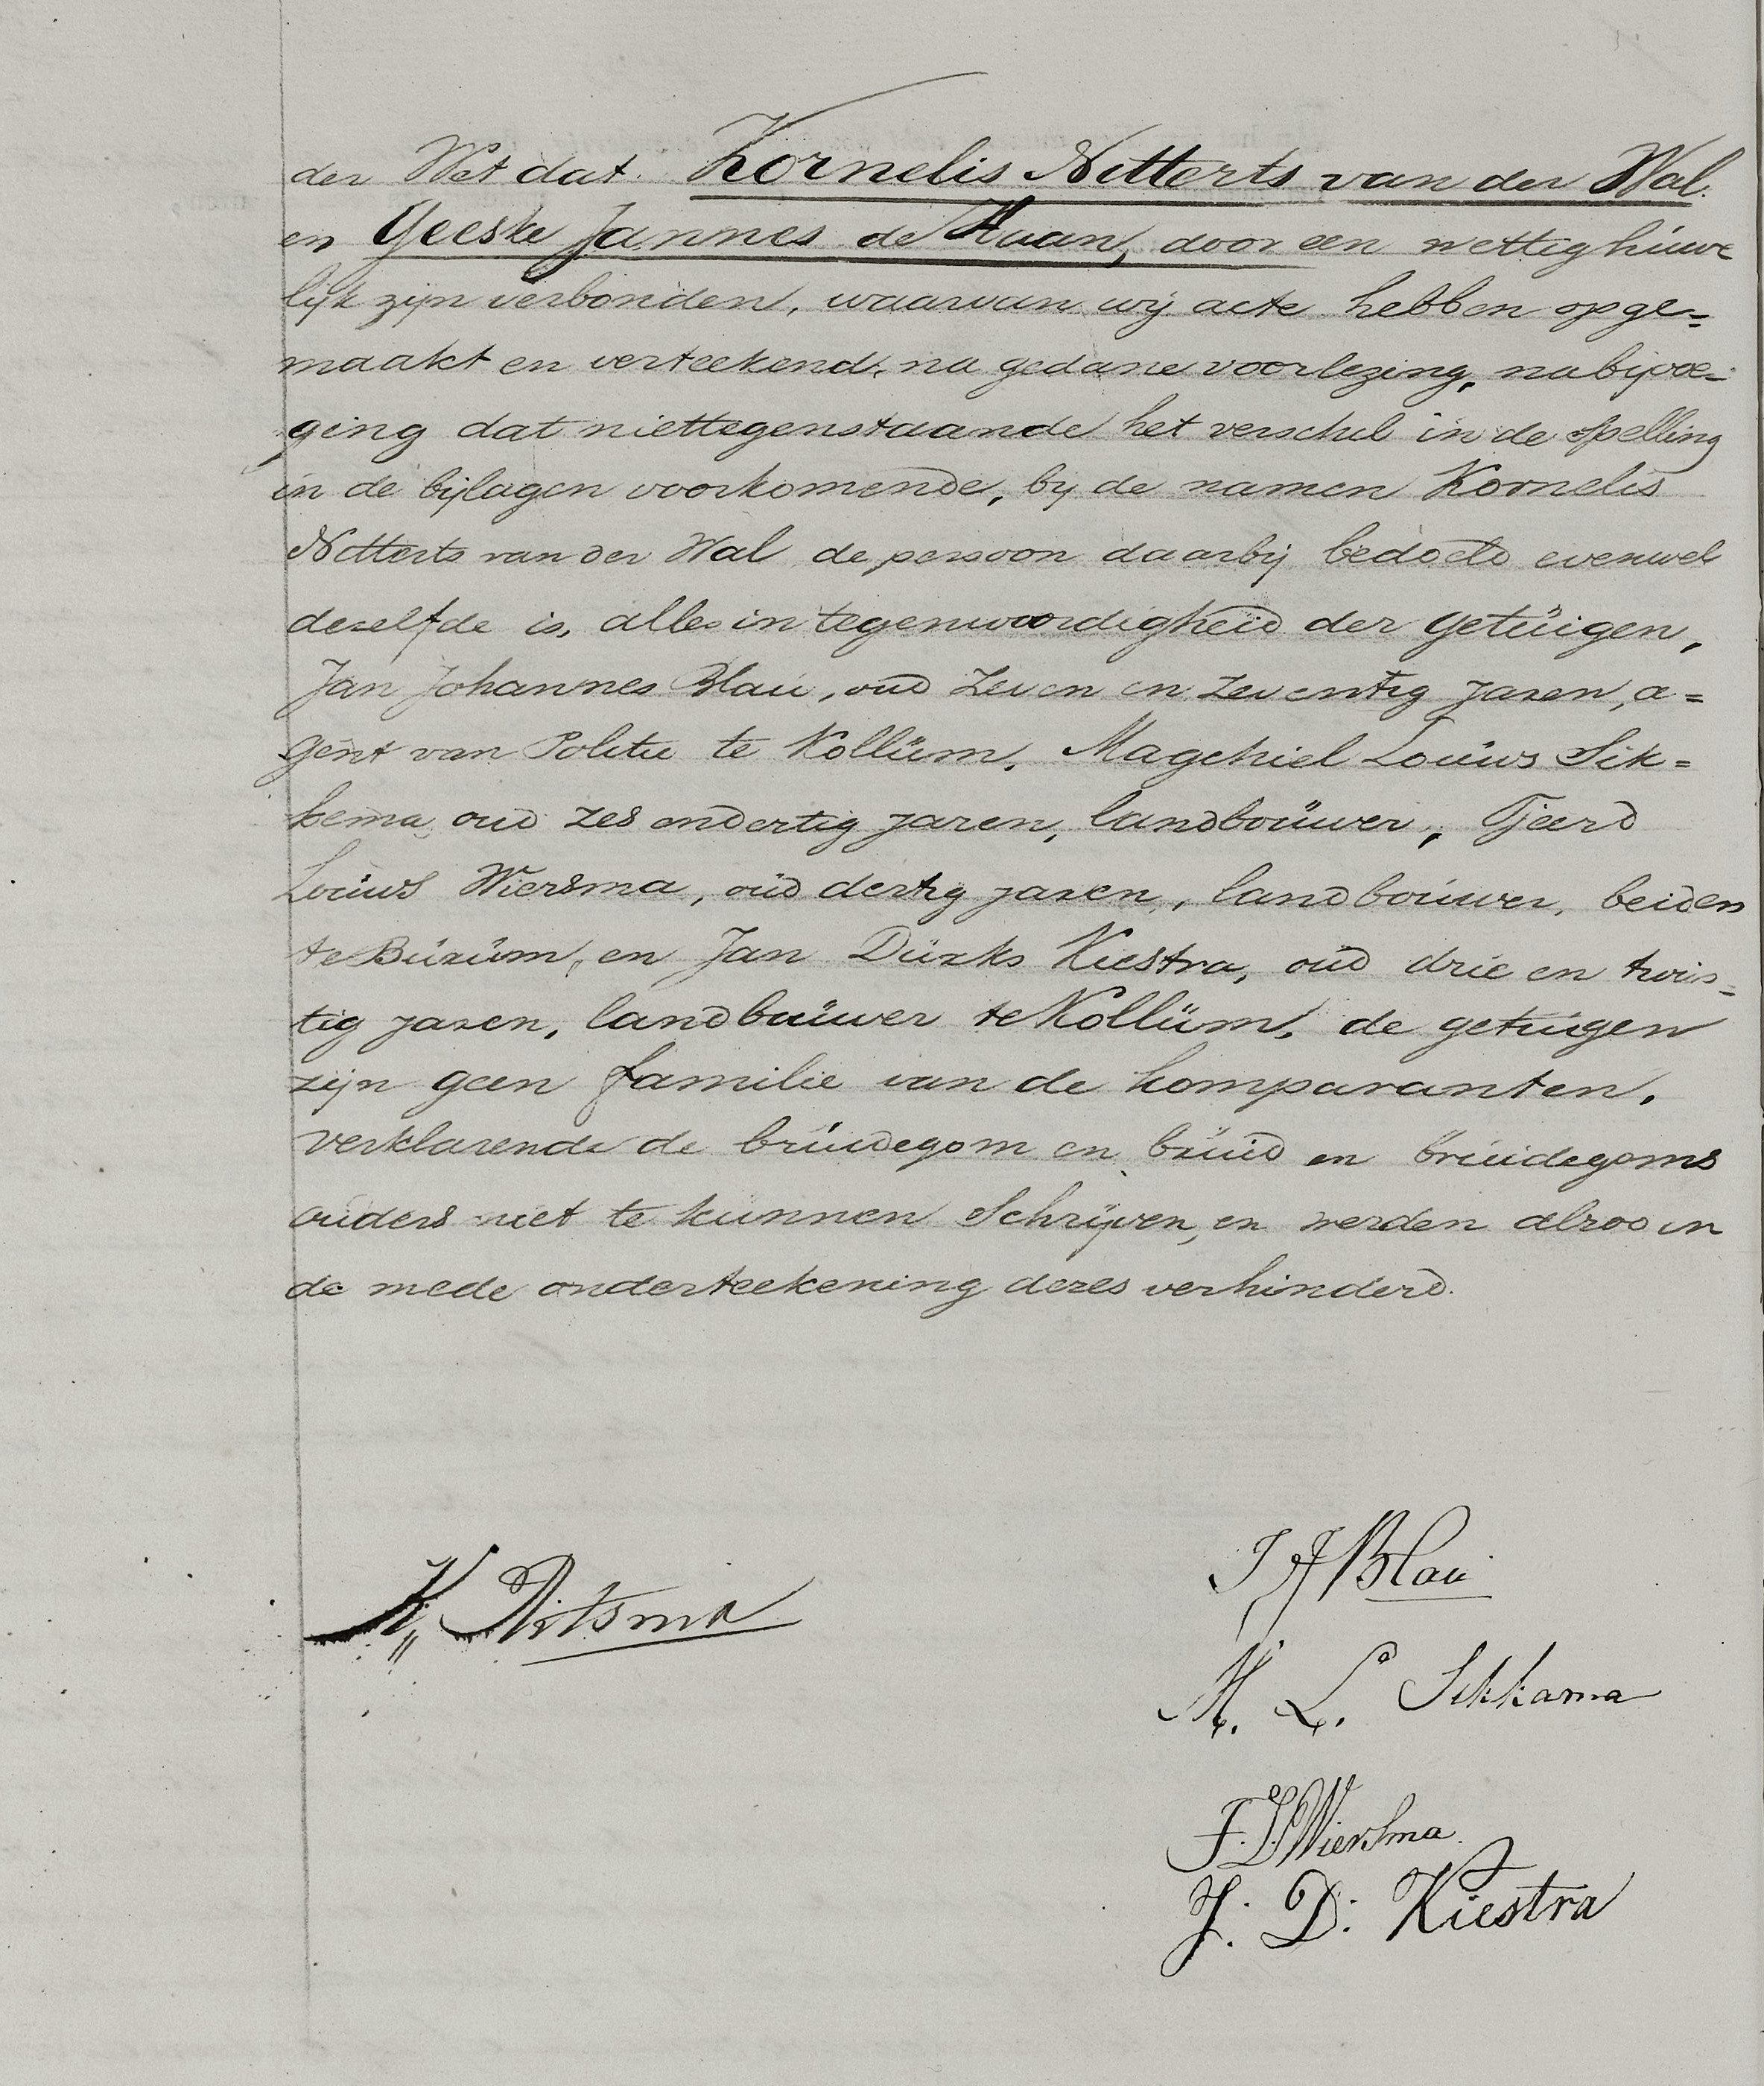 der Wet dat. Kornelis Netterts van der Wal.
en Geeske Jannes de Haan, door een wettig huwe
lijk zijn verbonden, waarvan wij acte hebben opge=
maakt en verteekend, na gedane voorlezing, na bijvoe=
ging dat niettegenstaande het verschil in de spelling
in de bijlagen voorkomende, bij de namen Kornelis
Netterts van der Wal de persoon daarbij bedoeld evenwel
dezelfde is, alles in tegenwoordigheid der getuigen,
Jan Johannes Blau, oud zeven en zeventig jaren, a=
gent van Politie te Kollum, Magchiel Louws Sik=
kema, oud zes en dertig jaren, landbouwer, Tjeerd
Louws Wiersma, oud dertig jaren, landbouwer, beiden
te Burum, en Jan Durks Kiestra, oud drie en twin=
tig jaren, landbouwer te Kollum, de getuigen
zijn geen familie van de komparanten,
verklarende de bruidegom en bruid en bruidegoms
ouders niet te kunnen schrijven, en werden alzoo in
de mede onderteekening dezes verhinderd.
J J Blau
K,,
M. L. Sikkama
T. L Wiersma.
J: D: Kiestra